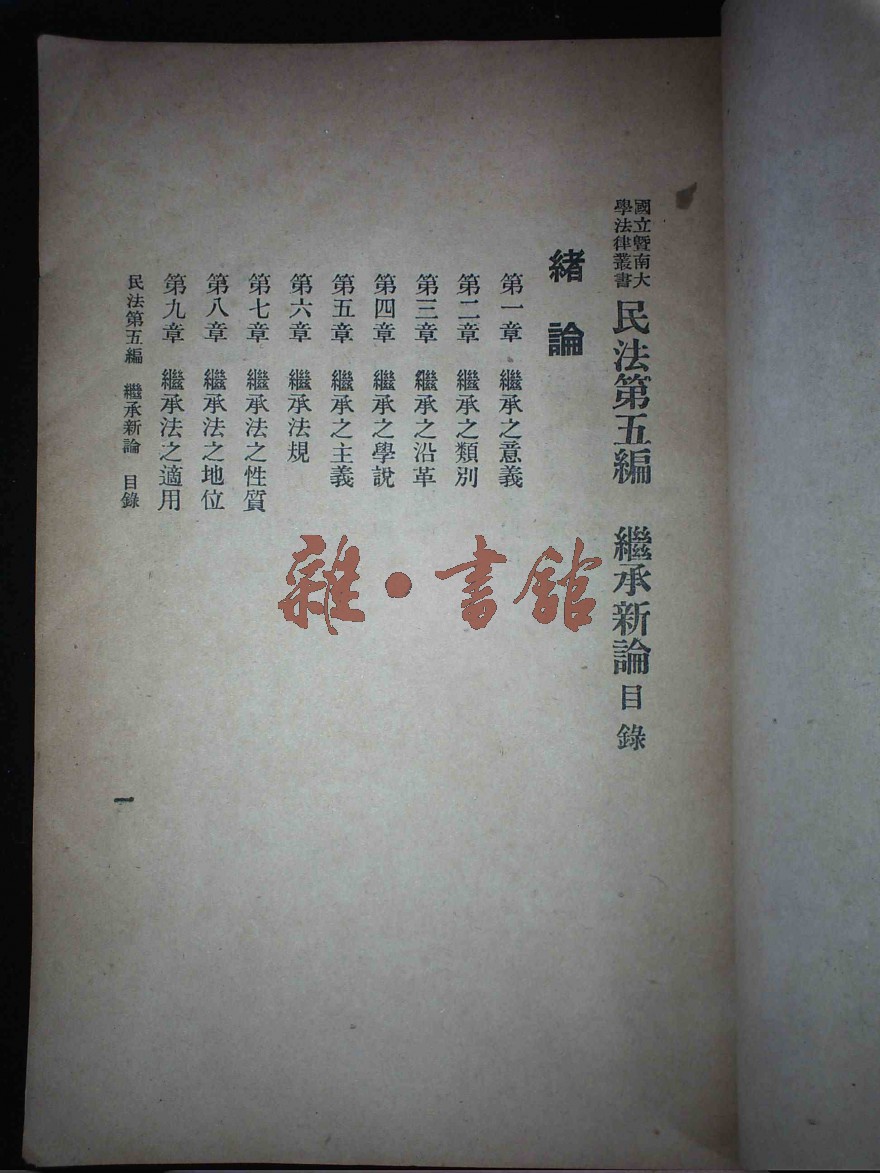 國立暨南大
學法律叢書
民法第五編 繼承新論目錄
緒論
第一章 繼承之意義
第二章 繼承之類別
第三章 繼承之沿革
第四章 繼承之學說
第五章 繼承之主義
第六章 繼承法規
第七章 繼承法之性質
第八章 繼承法之地位
第九章 繼承法之適用
民法第五編 繼承新論 目錄
一
雜·書館